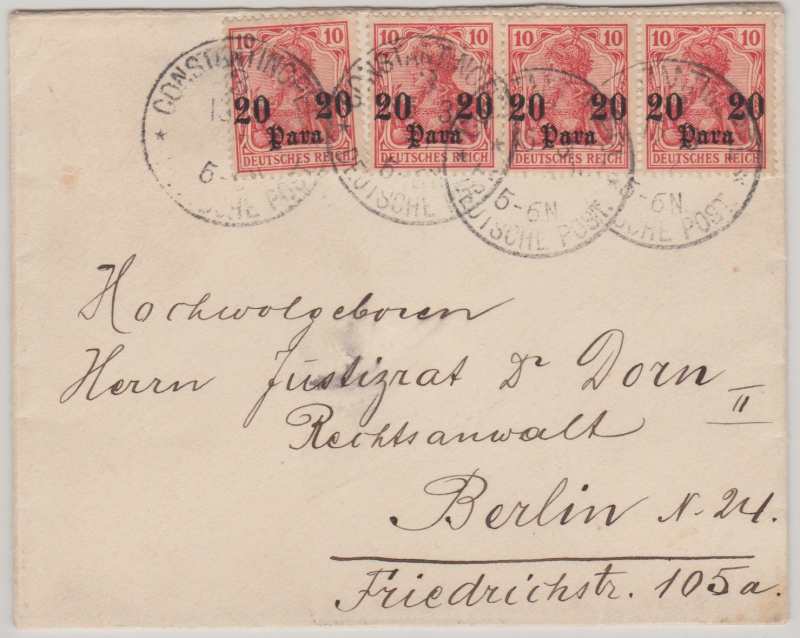 10 10 10 10 10 10 10 10
20 20 20 20 20 20 20 20
Para Para Para Para
DEUTSCHES REICH DEUTSCHES REICH DEUTSCHES REICH DEUTSCHES REICH
5-6N
5-6N
DEUTSCHE POST.
Hochwolgeboren
Herrn Justizrat Dr Dorn II
Rechtsanwalt
Berlin N. 24.
Friedrichstr. 105a.